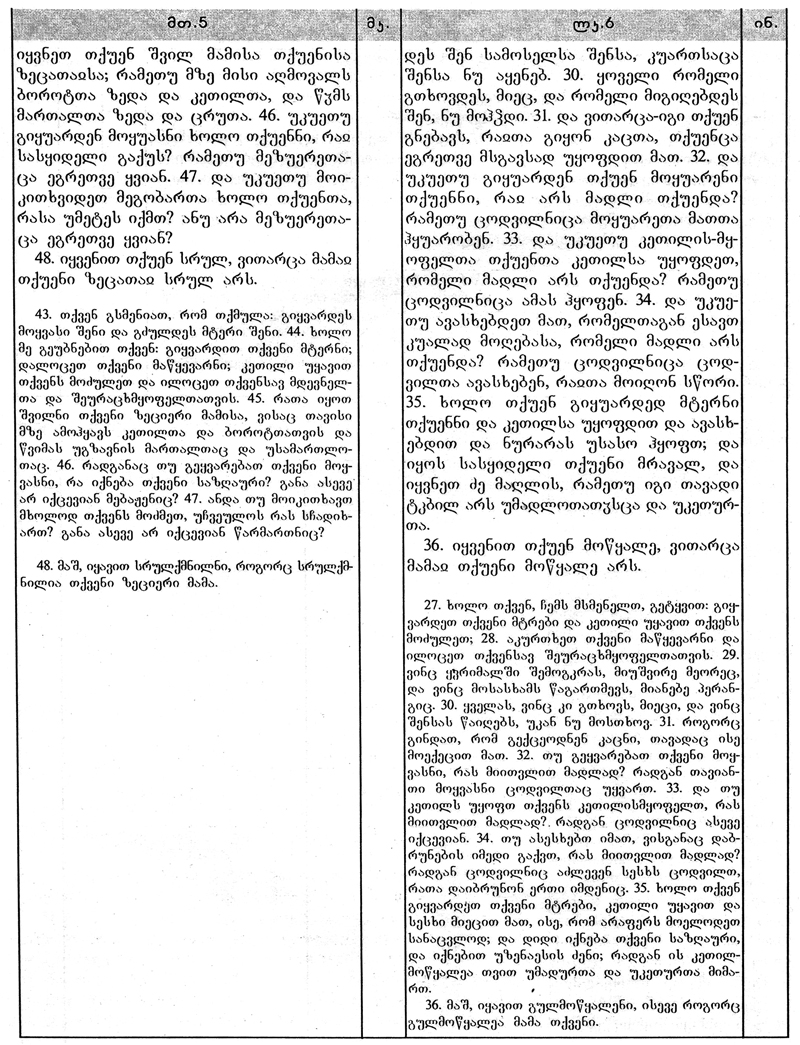 მთ.5
მკ.
ლკ.6
ინ.
იყვნეთ თქუენ შვილ მამისა თქუენისა
ზეცათაჲსა; რამეთუ მზე მისი აღმოვალს
ბოროტთა ზედა და კეთილთა, და წჳმს
მართალთა ზედა და ცრუთა. 46. უკუეთუ
გიყუარდენ მოყუასნი ხოლო თქუენნი, რაჲ
სასყიდელი გაქუს? რამეთუ მეზუერეთა-
ცა ეგრეთვე ყვიან. 47. და უკუეთუ მოი-
კითხვიდეთ მეგობართა ხოლო თქუენთა,
რასა უმეტეს იქმთ? ანუ არა მეზუერეთა-
ცა ეგრეთვე ყვიან?
48. იყვენით თქუენ სრულ, ვითარცა მამაჲ
თქუენი ზეცათაჲ სრულ არს.
43. თქვენ გსმენიათ, რომ თქმულა: გიყვარდეს
მოყვასი შენი და გძულდეს მტერი შენი. 44. ხოლო
მე გეუბნებით თქვენ: გიყვარდით თქვენი მტერნი;
დალოცეთ თქვენი მაწყევარნი; კეთილი უყავით
თქვენს მოძულეთ და ილოცეთ თქვენსავ მდევნელ-
თა და შეურაცხმყოფელთათვის. 45. რათა იყოთ
შვილნი თქვენი ზეციერი მამისა, ვისაც თავისი
მზე ამოჰყავს კეთილთა და ბოროტთათვის და
წვიმას უგზავნის მართალთაც და უსამართლო-
თაც. 46. რადგანაც თუ გეყვარებათ თქვენი მოყ-
ვასნი, რა იქნება თქვენი საზღაური? განა ასევე
არ იქცევიან მებაჟენიც? 47. ანდა თუ მოიკითხავთ
მხოლოდ თქვენს მოძმეთ, უჩვეულოს რას სჩადიხ-
ართ? განა ასევე არ იქცევიან წარმართნიც?
48. მაშ, იყავით სრულქმნილნი, როგორც სრულქმ-
ნილია თქვენი ზეციერი მამა.
დეს შენ სამოსელსა შენსა, კუართსაცა
შენსა ნუ აყენებ. 30. ყოველი რომელი
გთხოვდეს, მიეც, და რომელი მიგიღებდეს
შენ, ნუ მოჰჴდი. 31. და ვითარცა-იგი თქუენ
გნებავს, რაჲთა გიყონ კაცთა, თქუენცა
ეგრეთვე მსგავსად უყოფდით მათ. 32. და
უკუეთუ გიყუარდენ თქუენ მოყუარენი
თქუენნი, რაჲ არს მადლი თქუენდა?
რამეთუ ცოდვილნიცა მოყუარეთა მათთა
ჰყუარობენ. 33. და უკუეთუ კეთილის-მყ-
ოფელთა თქუენთა კეთილსა უყოფდეთ,
რომელი მადლი არს თქუენდა? რამეთუ
ცოდვილნიცა ამას ჰყოფენ. 34. და უკუე-
თუ ავასხებდეთ მათ, რომელთაგან ესავთ
კუალად მოღებასა, რომელი მადლი არს
თქუენდა? რამეთუ ცოდვილნიცა ცოდ-
ვილთა ავასხებენ, რაჲთა მოიღონ სწორი.
35. ხოლო თქუენ გიყუარდედ მტერნი
თქუენნი და კეთილსა უყოფდით და ავასხ-
ებდით და ნურარას უსასო ჰყოფთ; და
იყოს სასყიდელი თქუენი მრავალ, და
იყვნეთ ძე მაღლის, რამეთუ იგი თავადი
ტკბილ არს უმადლოთათჳსცა და უკეთურ-
თა.
36. იყვენით თქუენ მოწყალე, ვითარცა
მამაჲ თქუენი მოწყალე არს.
27. ხოლო თქვენ, ჩემს მსმენელთ, გეტყვით: გიყ-
ვარდეთ თქვენი მტრები და კეთილი უყავით თქვენს
მოძულეთ; 28. აკურთხეთ თქვენი მაწყევარნი და
ილოცეთ თქვენსავ შეურაცხმყოფელთათვის. 29.
ვინც ყვრიმალში შემოგკრას, მიუშვირე მეორეც,
და ვინც მოსასხამს წაგართმევს, მიანებე პერან-
გიც. 30. ყველას, ვინც კი გთხოვს, მიეცი, და ვინც
შენსას წაიღებს, უკან ნუ მოსთხოვ. 31. როგორც
გინდათ, რომ გექცეოდნენ კაცნი, თავადაც ისე
მოექეცით მათ. 32. თუ გეყვარებათ თქვენი მოყ-
ვასნი, რას მიითვლით მადლად? რადგან თავიან-
თი მოყვასნი ცოდვილთაც უყვართ. 33. და თუ
კეთილს უყოფთ თქვენს კეთილისმყოფელთ, რას
მიითვლით მადლად? რადგან ცოდვილნიც ასევე
იქცევიან. 34. თუ ასესხებთ იმათ, ვისგანაც დაბ-
რუნების იმედი გაქვთ, რას მიითვლით მადლად?
რადგან ცოდვილნიც აძლევენ სესხს ცოდვილთ,
რათა დაიბრუნონ ერთი იმდენიც. 35. ხოლო თქვენ
გიყვარდეთ თქვენი მტრები, კეთილი უყავით და
სესხი მიეცით მათ, ისე, რომ არაფერს მოელოდეთ
სანაცვლოდ; და დიდი იქნება თქვენი საზღაური,
და იქნებით უზენაესის ძენი; რადგან ის კეთილ-
მოწყალეა თვით უმადურთა და უკეთურთა მიმა-
რთ.
36. მაშ, იყავით გულმოწყალენი, ისევე როგორც
გულმოწყალეა მამა თქვენი.